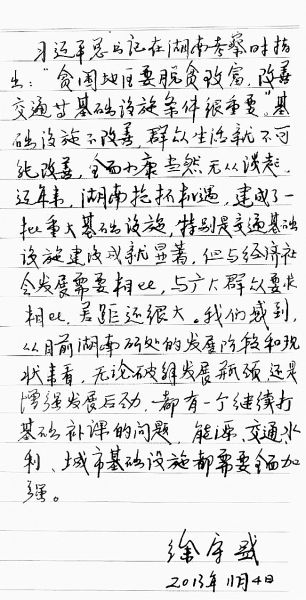 习近平总书记在湖南考察时指
出：“贫困地区要脱贫致富，改善
交通等基础设施条件很重要”。基
础设施不改善，群众生活就不可
能改善，全面小康当然无从谈起。
近年来，湖南抢抓机遇，建成了一
批重大基础设施，特别是交通基础
设施建设成就显著，但与经济社
会发展需要相比，与广大群众要求
相比，差距还很大。我们感到，
从目前湖南所处的发展阶段和现
状来看，无论破解发展瓶颈还是
增强发展后劲，都有一个继续打
基础补课的问题，能源、交通、水
利、城市基础设施都需要全面加
强。
徐守盛
2013年11月4日